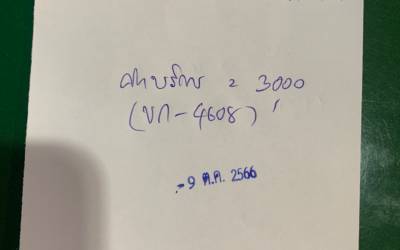 ค่าบริการ = 3000
(ขก-4608)
-9 ต.ค. 2566